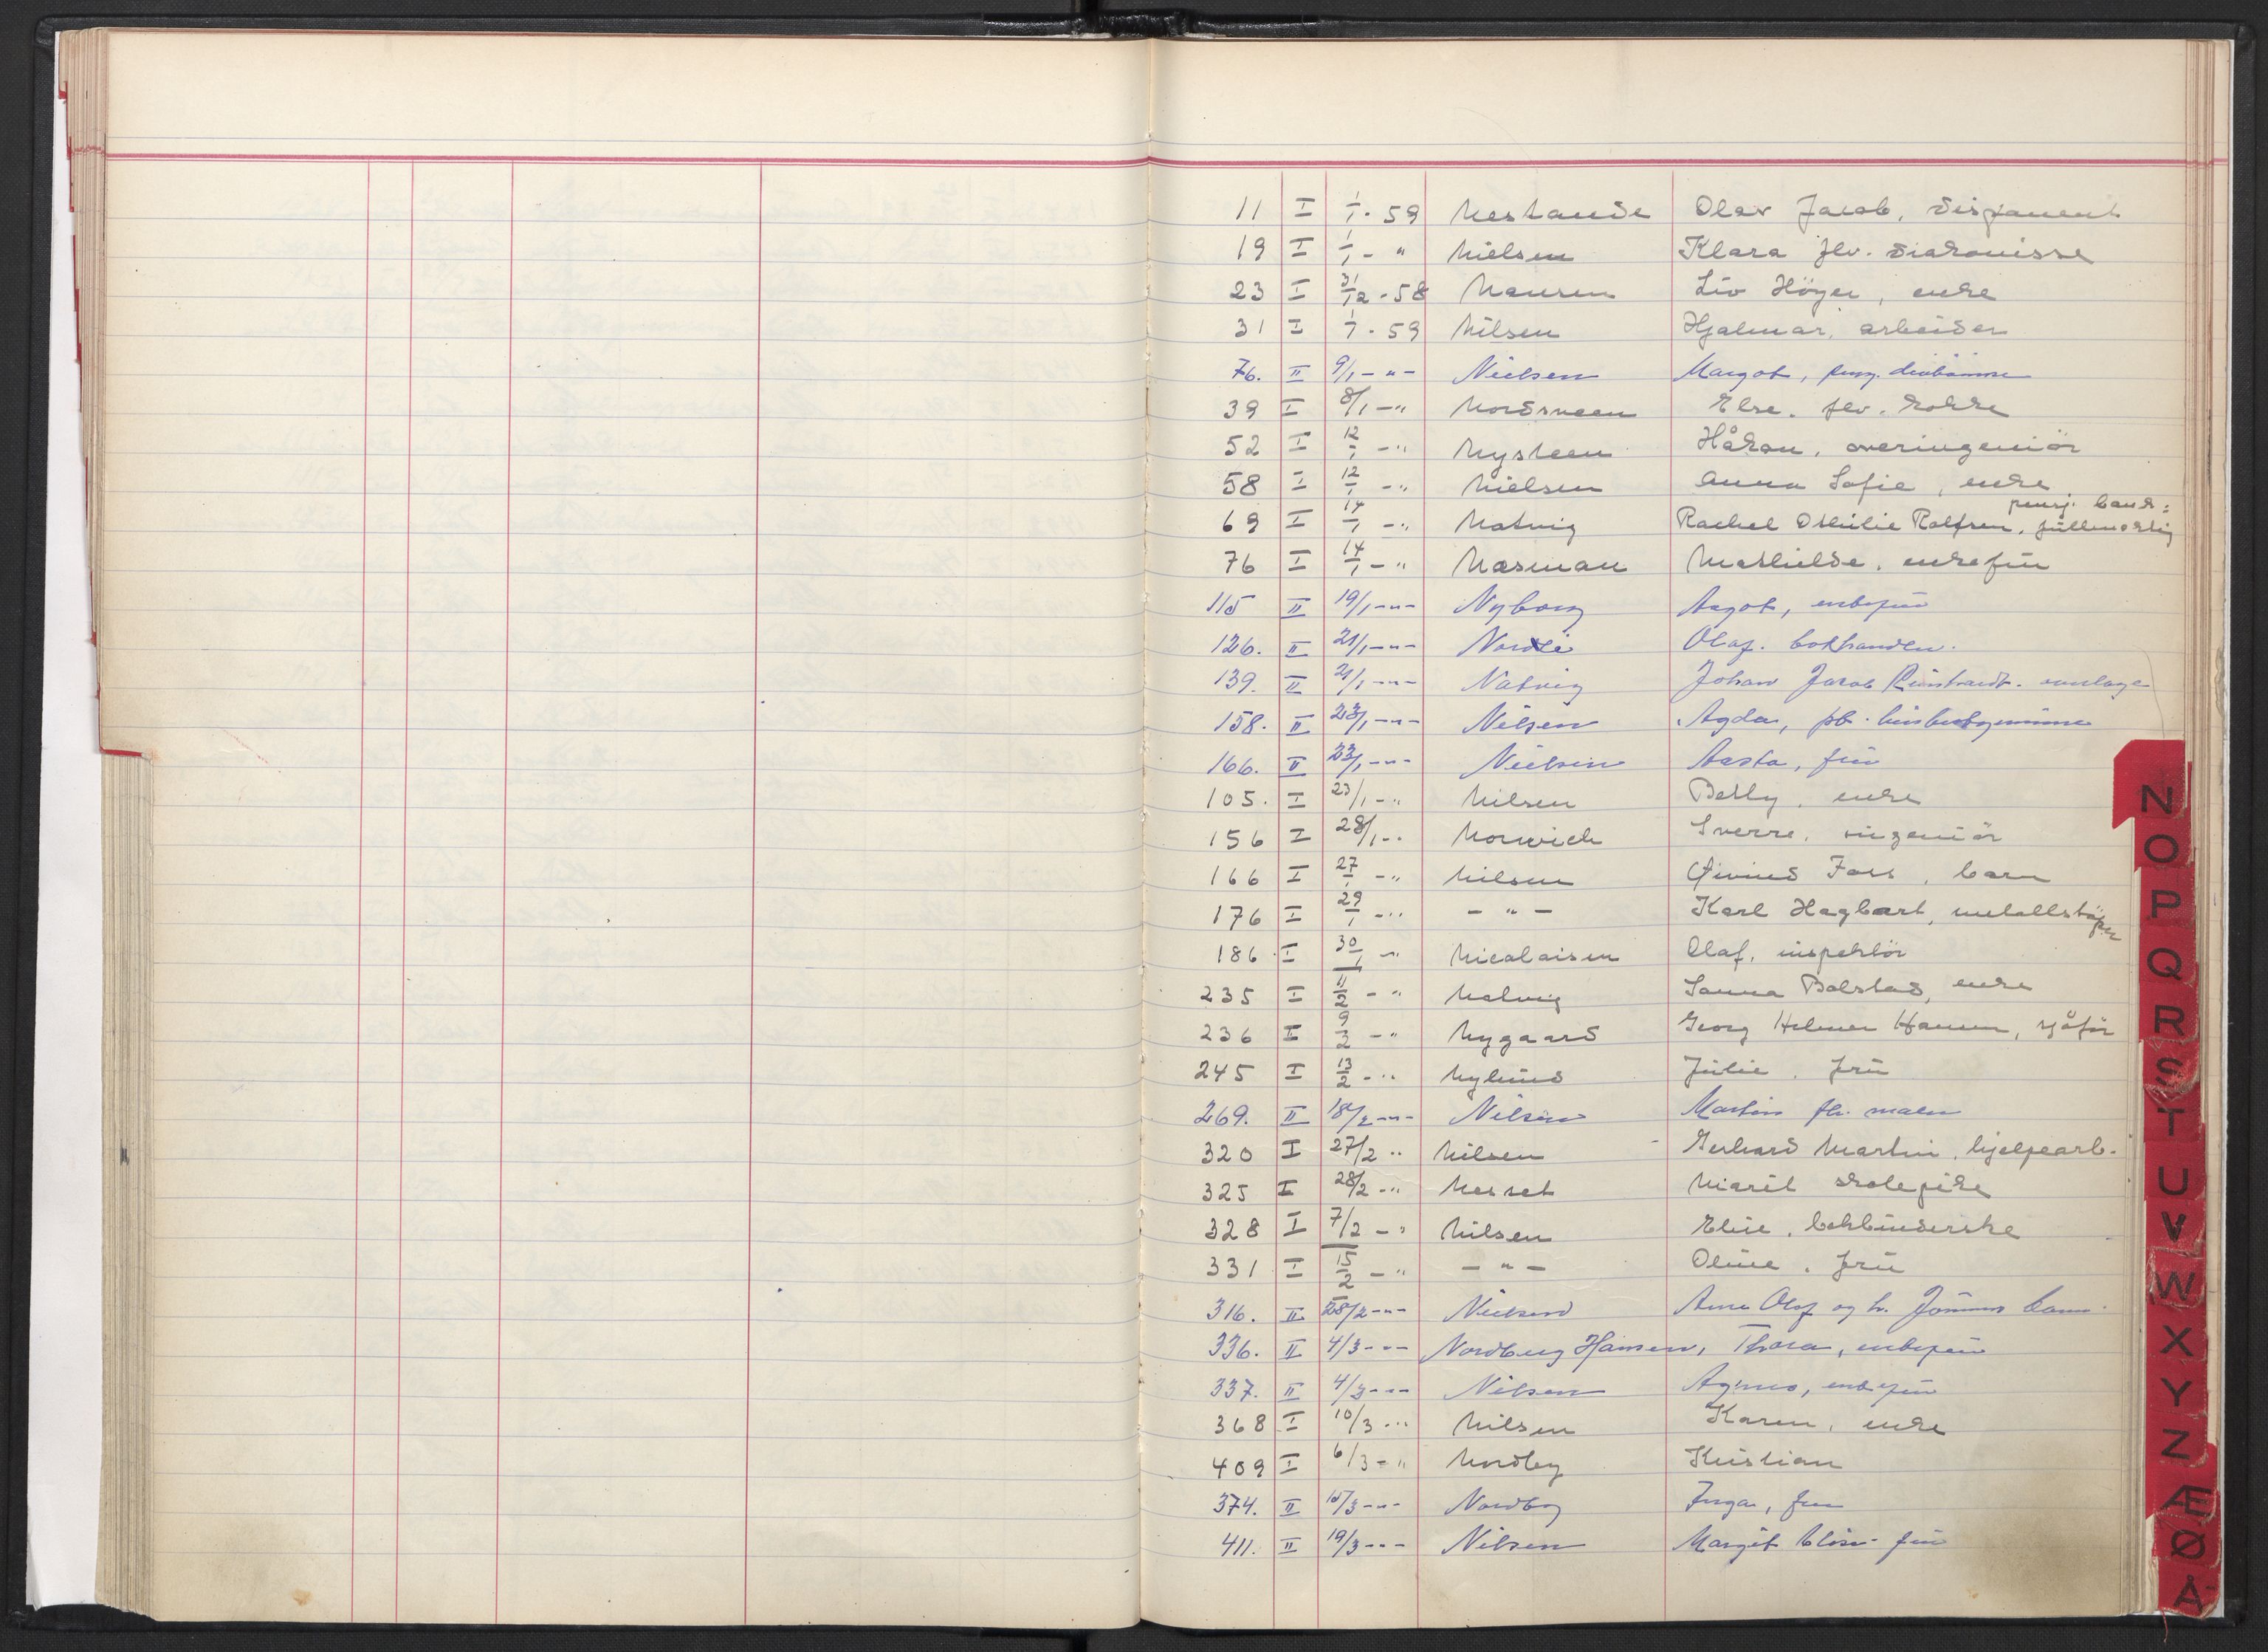 11 I 1/1 - 59 Nestande Olav Jacob, disponent
19 I 1/1 - " Nielsen Klara flv. diakonisse
23 I 31/12 - 58 Nansen Liv Höyer, enke
31 I 1/1 - 59 Nilsen Hjalmar, arbeider
76. II 9/1 - " - Nielsen Margot, pens.
39 I 8/1 - " Nordsveen Else. flv. kokke
52 I 12/1 - " Nysteen Håkon, overingeniör
58 I 12/1 - " Nielsen Anna Sofie, enke
69 I 14/1 - " Natvig Rachel Othilie Rolfsen, pensj. bank: füllmektig
76 I 14/1 - " Næsman Mathilde, enkefrü
115 II 19/1 - " - Nyborg Aagot, enkefrü
126. II 21/1 - " - Nordli Olaf. bokhandler.
139. II 21/1 - " - Natvig Johan Jacob overlæge
158. II 23/1 - " - Nilsen Agda, pb.
166. II 23/1 - " - Nielsen Aasta, frü
105. I 23/1 - " Nilsen Betty, enke
156 I 28/1 - " Norwich Sverre, ingeniör
166 I 27/1 - " Nilsen Øivind Foss, barn
176 I 29/1 - " - " - Karl Hagbart, metallstöper
186 I 30/1 - " Nicolaisen Olaf, inspektör
235 I 11/2 - " Natvig Sanna Bolstad, enke
236 I 9/2 - " Nygaard Georg Helmer Hansen, sjåför
245 I 13/2 - " Nylünd Jülie, frü
269. II 18/2 - " - Nilsen Martin fh. maler
320 I 27/2 " Nilsen Gerhard Martin, hjelpearb.
325 I 28/2 - " Nesset Marit skolepike
328 I 7/2 - " Nilsen Elise, bokbinderske
331 I 15/2 - " - " - Oline, frü
316. II 28/2 - " - Nielsen Arne Olaf og h. barn.
336. II 4/3 - " - Nordberg Hansen, Thora, enkefrü
337. II 4/3 - " - Nilsen Agnes, enkefrü
368 I 10/3 - " Nilsen Karen, enke
409 I 6/3 - " Nordby Kristian
374. II 15/3 - " - Nordby Inga, frü
411. II 19/3 - " - Nilsen Margit frü
N
O
P
Q
R
S
T
U
V
W
X
Y
Z
Æ
Ø
Å